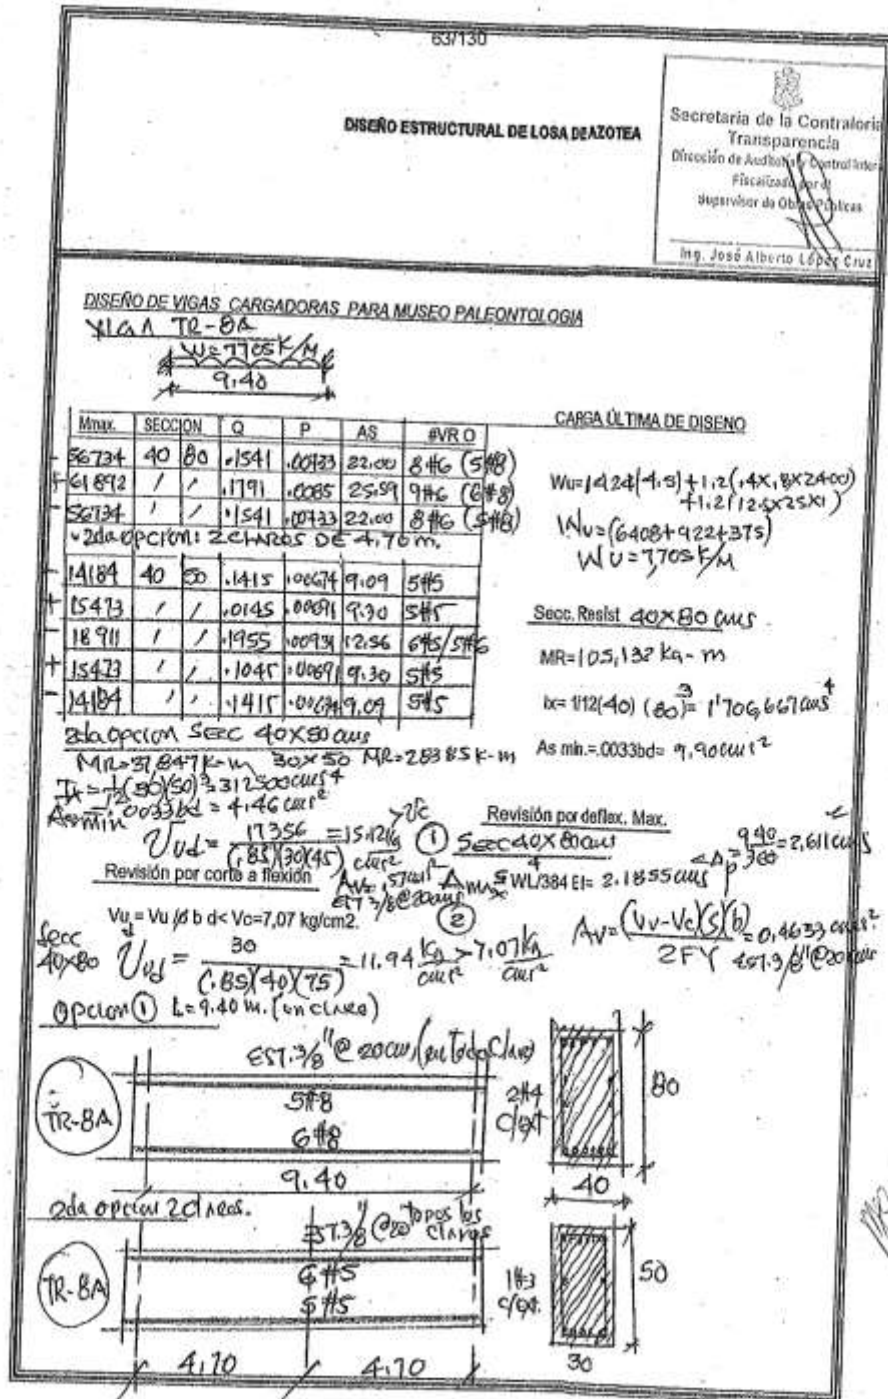 63/130
DISEÑO ESTRUCTURAL DE LOSA DE AZOTEA
Secretaría de la Contraloría
Transparencia
Dirección de Auditoría y Control Inter
Fiscalizado por el
Supervisor de Obras Públicas
Ing. José Alberto López Cruz
DISEÑO DE VIGAS CARGADORAS PARA MUSEO PALEONTOLOGIA
VIGA TR-8A
W=7705 K/M
9.40
Mmax. SECCION Q P AS #VR O
- 56734 40 80 .1541 .00733 22.00 8#6 (5#8)
+ 61892 / / .1791 .0085 25.59 9#6 (6#8)
- 56734 / / .1541 .00733 22.00 8#6 (5#8)
2da opcion: 2 CLAROS DE 4.70 m.
- 14184 40 50 .1415 .00674 9.09 5#5
+ 15473 / / .0145 .00691 9.30 5#5
- 18911 / / .1955 .00931 12.56 6#5/5#6
+ 15473 / / .1045 .00691 9.30 5#5
- 14184 / / .1415 .00674 9.09 5#5
CARGA ÚLTIMA DE DISENO
Wu=1424(4.5)+1.2(.4X.8X2400)
+1.2(12.5X25X1)
Wu=(6408+922+375)
WU=7,705 K/M
Secc. Resist 40X80 cms
MR=105,132 kg-m
Ix= 1/12(40) (80)3= 1'706,667 cms4
As min.=.0033bd= 9.90 cms2
2da opcion SECC 40X50 cms
MR=37,847 K-m 30X50 MR=28385 K-m
Ix=1/12(30)(50)3=312500 cms4
Asmin .0033bd = 4.46 cms2
Uud= 17356/(.85)(30)(45) =15.12 kg/cms2 >Vc
Av=.57cms2
EST 3/8@20cms
Revisión por deflex. Max.
① SECC 40X80 cms
Δmax 5 WL4/384 EI= 2.1855 cms <Δp= 940/360=2,611 cms
Revisión por corte a flexión
②
Vud = Vu /ø b d< Vc=7,07 kg/cm2.
Av= (Vv-Vc)(S)(b)/2FY =0.4633 cms2.
EST.3/8"@20 cms
Secc 40X80 Uud= 30/(.85)(40)(75) =11.94 kg/cms2 >7.07 kg/cms2
Opcion ① L=9.40 m. (un claro)
EST.3/8"@ 20cms, (en Todo Claro)
TR-8A
5#8
6#8
2#4
c/ext
80
9.40
40
2da opcion 2 claros.
EST.3/8"@20 Todos los claros
TR-8A
6#5
5#5
1#3
c/ext.
50
4.70
4.70
30